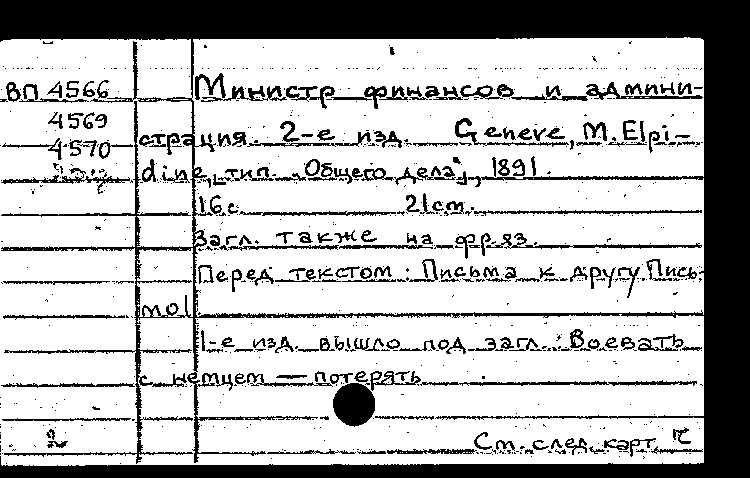 ВП 4566 Министр финансов и админи-
4569
4570 страция. 2-е изд. Geneve, M. Elpi-
dine, тип. „Общего дела“, 1891.
16 с. 21 cm.
Загл. также на фр. яз.
Перед текстом: Письма к другу. Пись-
мо I
1-е изд. вышло под загл.: Воевать
с немцем — потерять
2 См. след. карт.